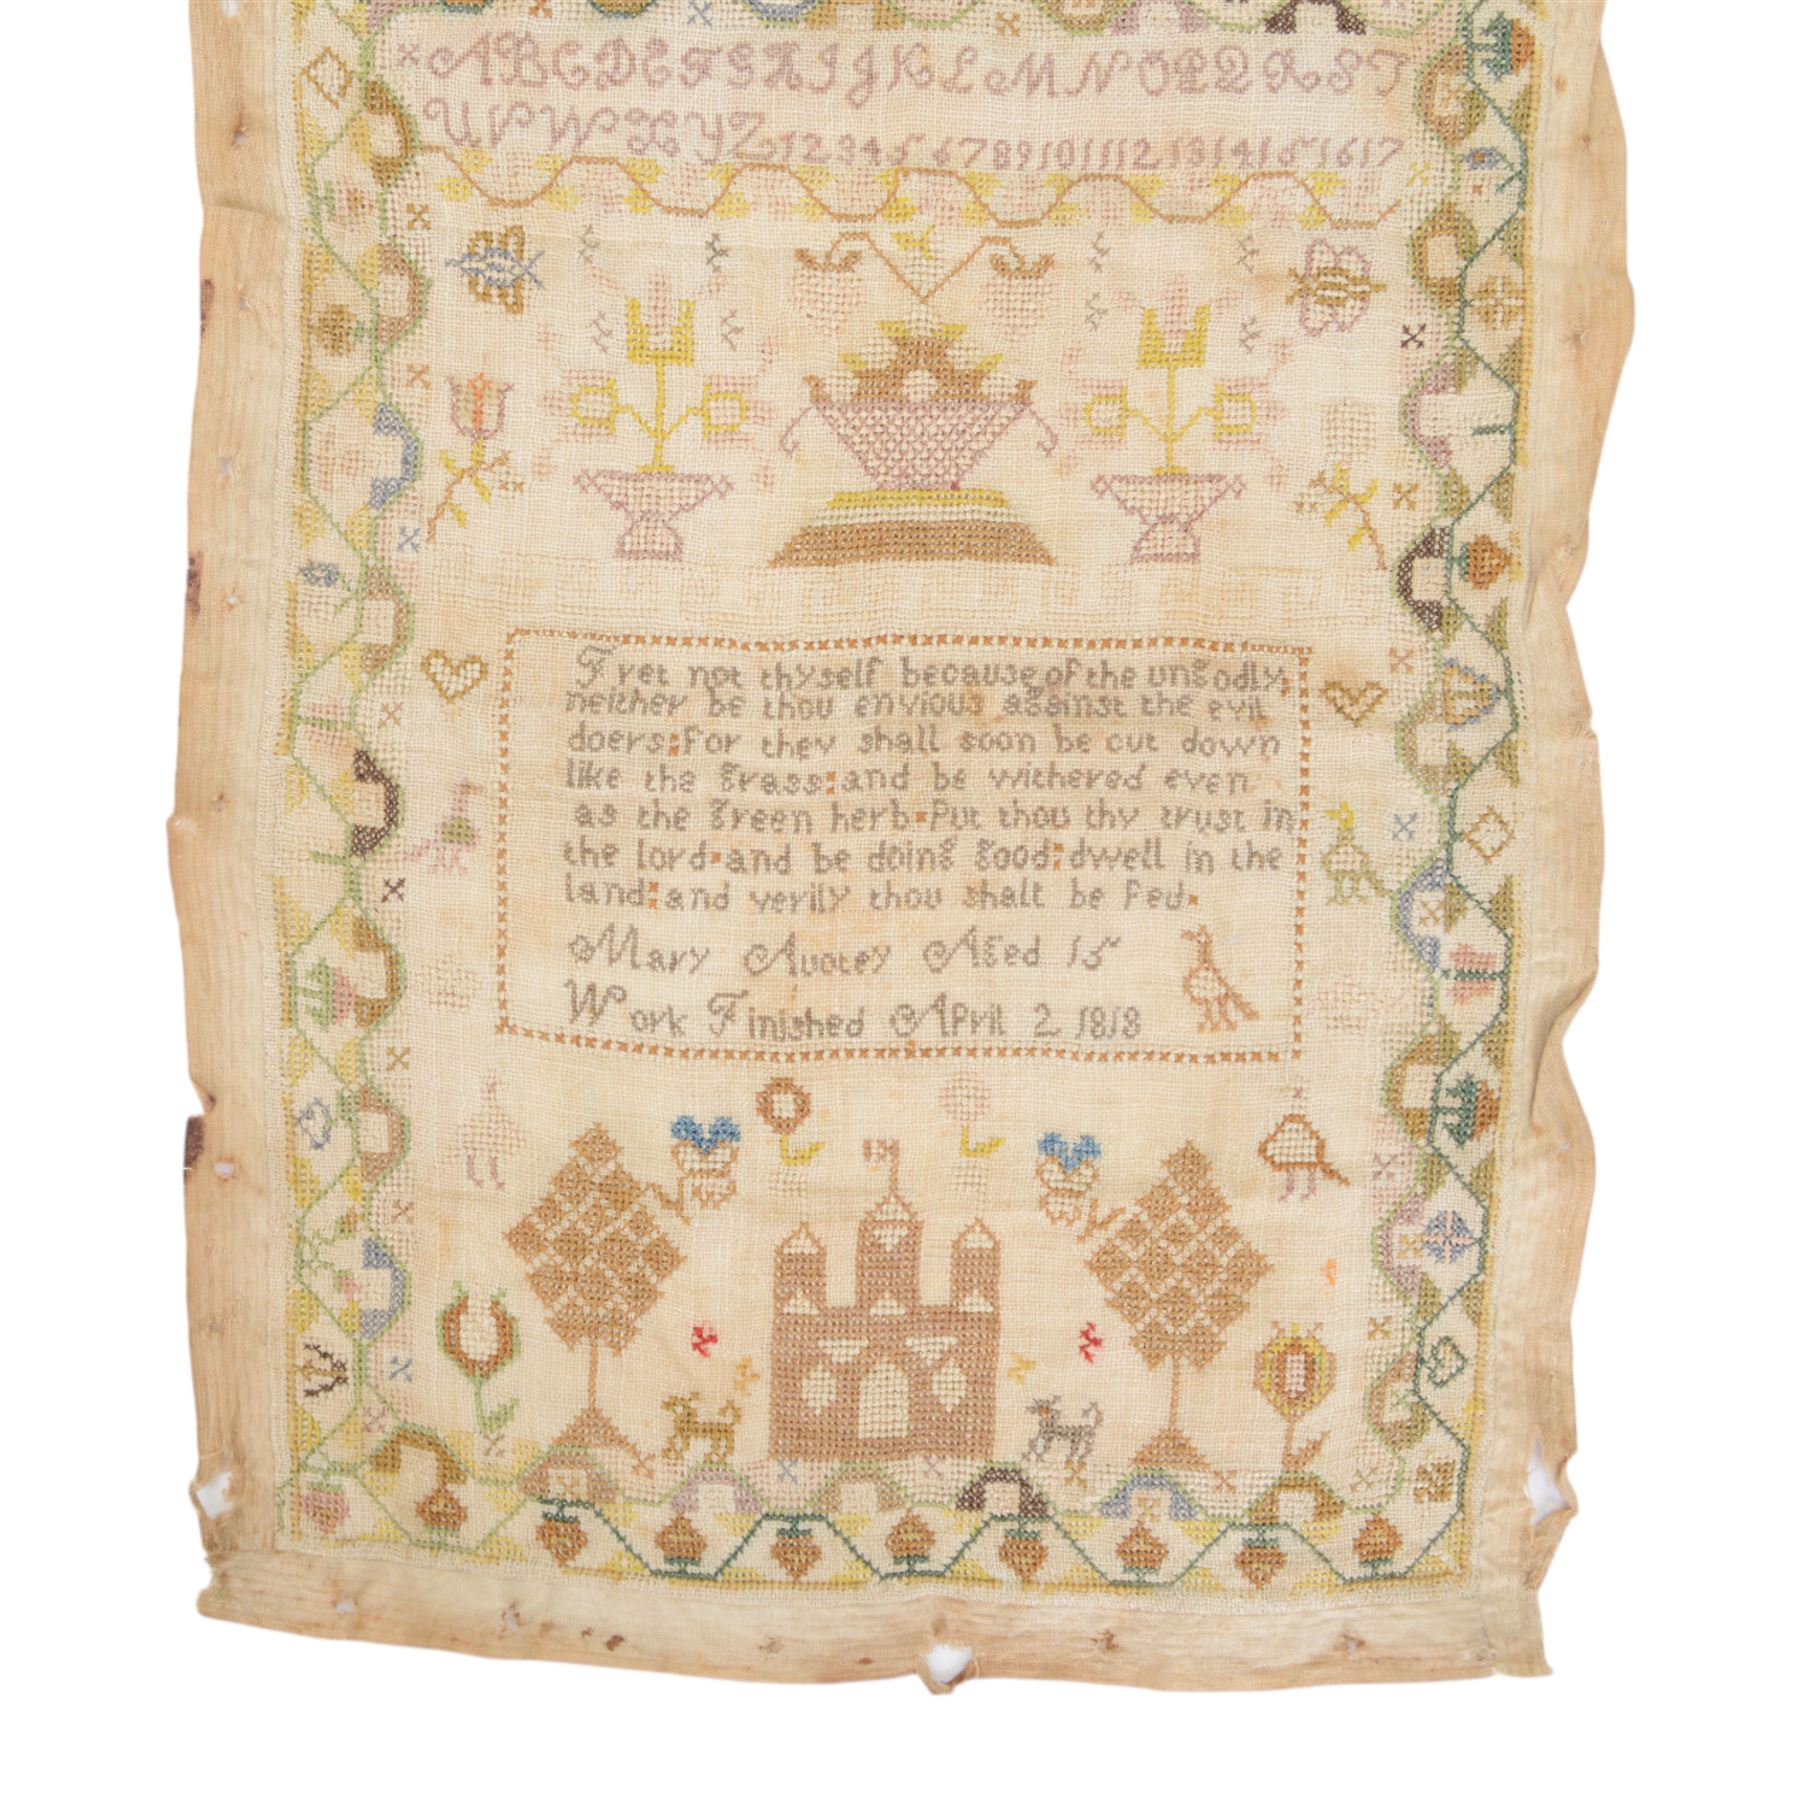 A B C D E F G H I J K L M N O P Q R S T
U V W X Y Z 1 2 3 4 5 6 7 8 9 10 11 12 13 14 15 16 17
Fret not thyself because of the ungodly;
neither be thou envious against the evil
doers: for they shall soon be cut down
like the grass: and be withered even
as the green herb. Put thou thy trust in
the lord. and be doing good: dwell in the
land: and verily thou shalt be Fed.
Mary Avotey Aged 15
Work Finished April 2 1818